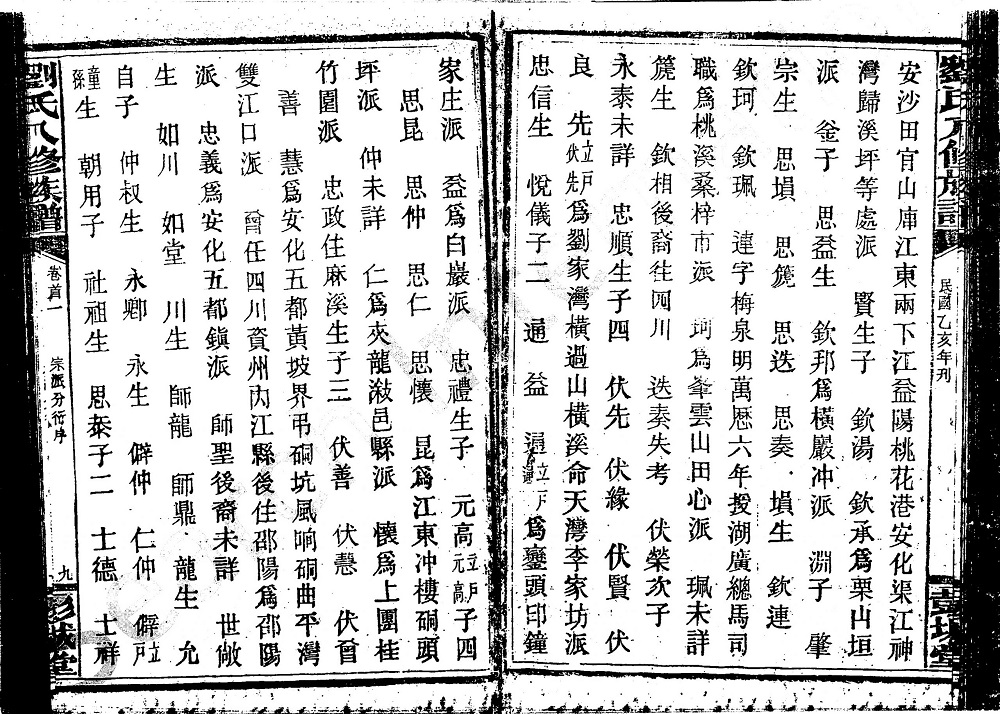 安沙田官山庫江東兩下江益陽桃花港安化渠江神
灣歸溪坪等處派 賢生子 欽湯 欽承爲栗山垣
派 釜子 思益生 欽邦爲橫嚴冲派 淵子 肇
崇生 思塤 思篪 思迭 思奏 塤生 欽連
欽珂 欽珮 連字梅泉明萬厯六年授湖廣總馬司
職爲桃溪桑梓市派 珂爲峯雲山田心派 珮未詳
篪生 欽相後裔徃四川 迭奏失考 伏榮次子
永泰未詳 忠順生子四 伏先 伏緣 伏賢 伏
良 先立戶伏先爲劉家灣橫過山橫溪命天灣李家坊派
忠信生 悅儀子二 逼 益 逼立戶 爲臺頭印鐘
家庄派 益爲白巖派 忠禮生子 元高立戶元高子四
思昆 思仲 思仁 思懷 昆爲江東冲樓硐頭
坪派 仲未詳 仁爲夾龍漵邑縣派 懷爲上團桂
竹圍派 忠政住麻溪生子三 伏善 伏慧 伏曾
善 慧爲安化五都黃坡界弔硐坑風响硐曲平灣
雙江口派 曾任四川資州內江縣後住邵陽爲邵陽
派 忠義爲安化五都鎭派 師聖後裔未詳 世敞
生 如川 如堂 川生 師龍 師鼎 龍生 允
自子 仲叔生 永卿 永生 僻仲 仁仲 僻立戶
童孫生 朝用子 社祖生 思泰子二 士德 士祥
劉氏八修族譜
卷首一
宗派分衍序
九
彭城堂
民國乙亥年刋